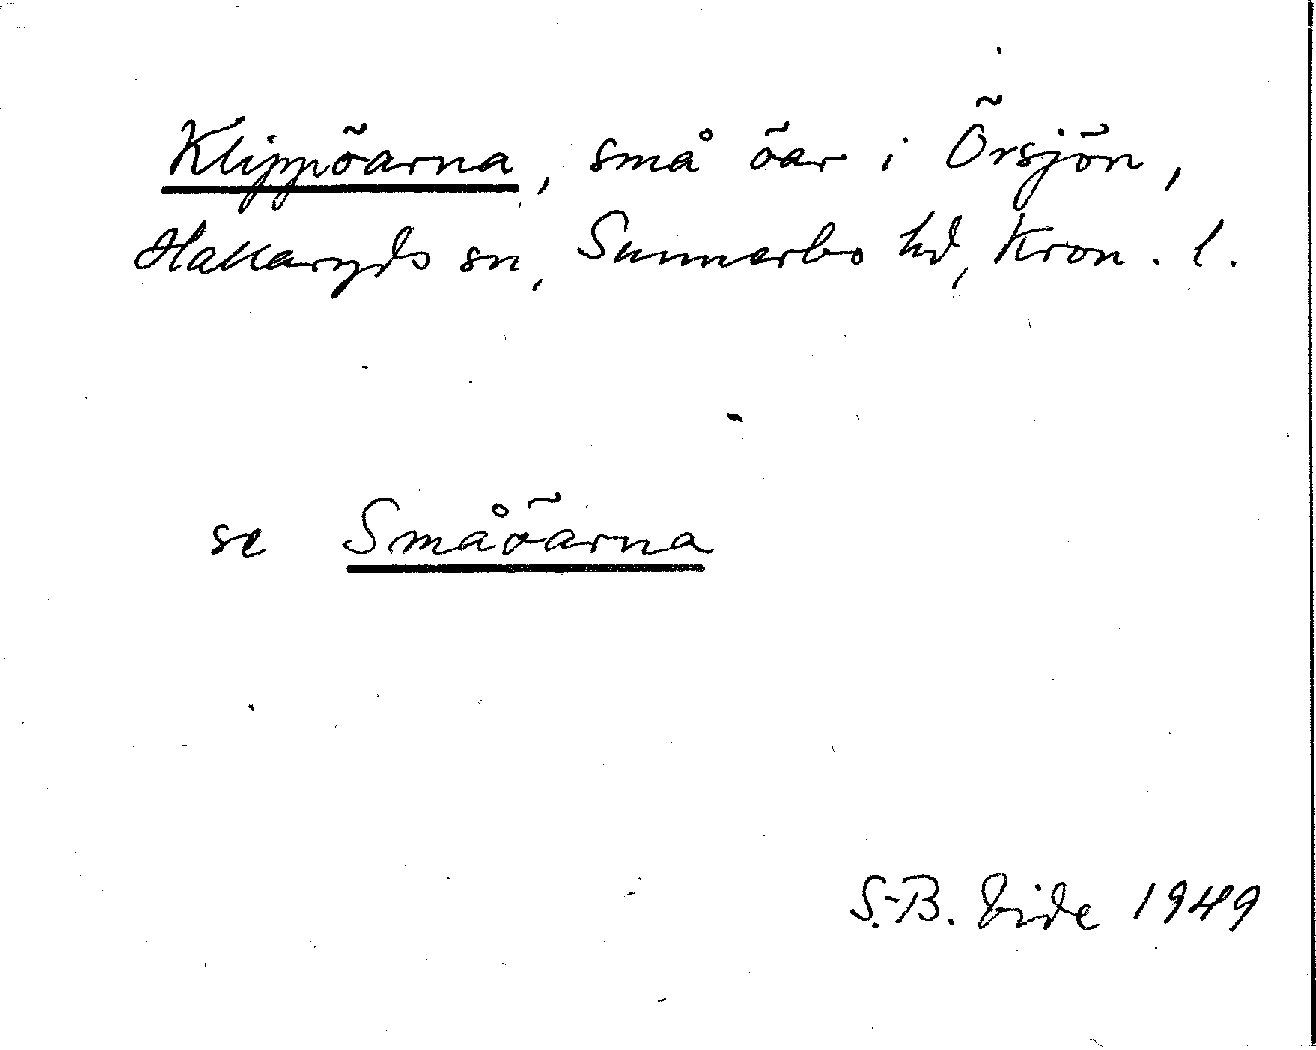 Klippöarna, små öar i Örsjön,
Hallaryds sn, Sunnerbo hd, Kron. l.
se Småöarna
S.-B. Vide 1949